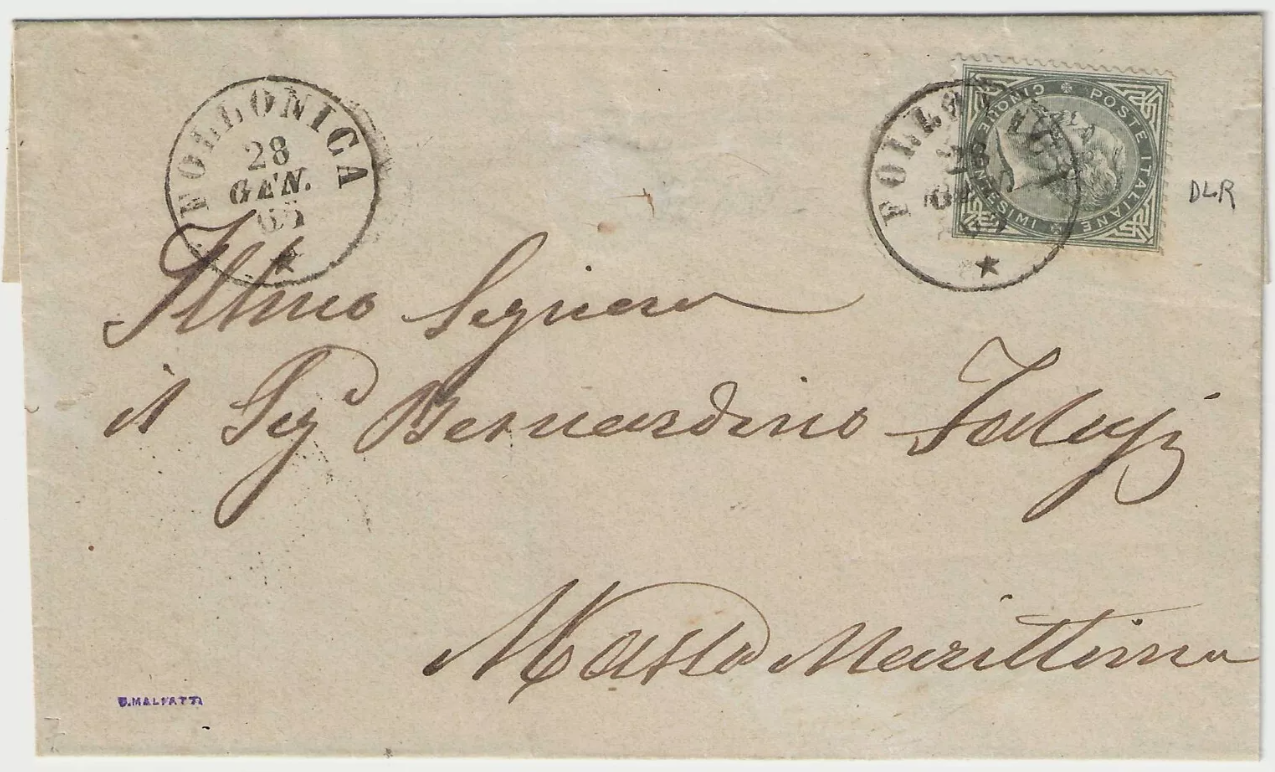 FOLLONICA
28
GEN.
65
FOLLONICA
POSTE ITALIANE
CINQUE CENTESIMI
DLR
Illmo Signore
il Sigr Bernardino
Massa Marittima
E.MALFATTI